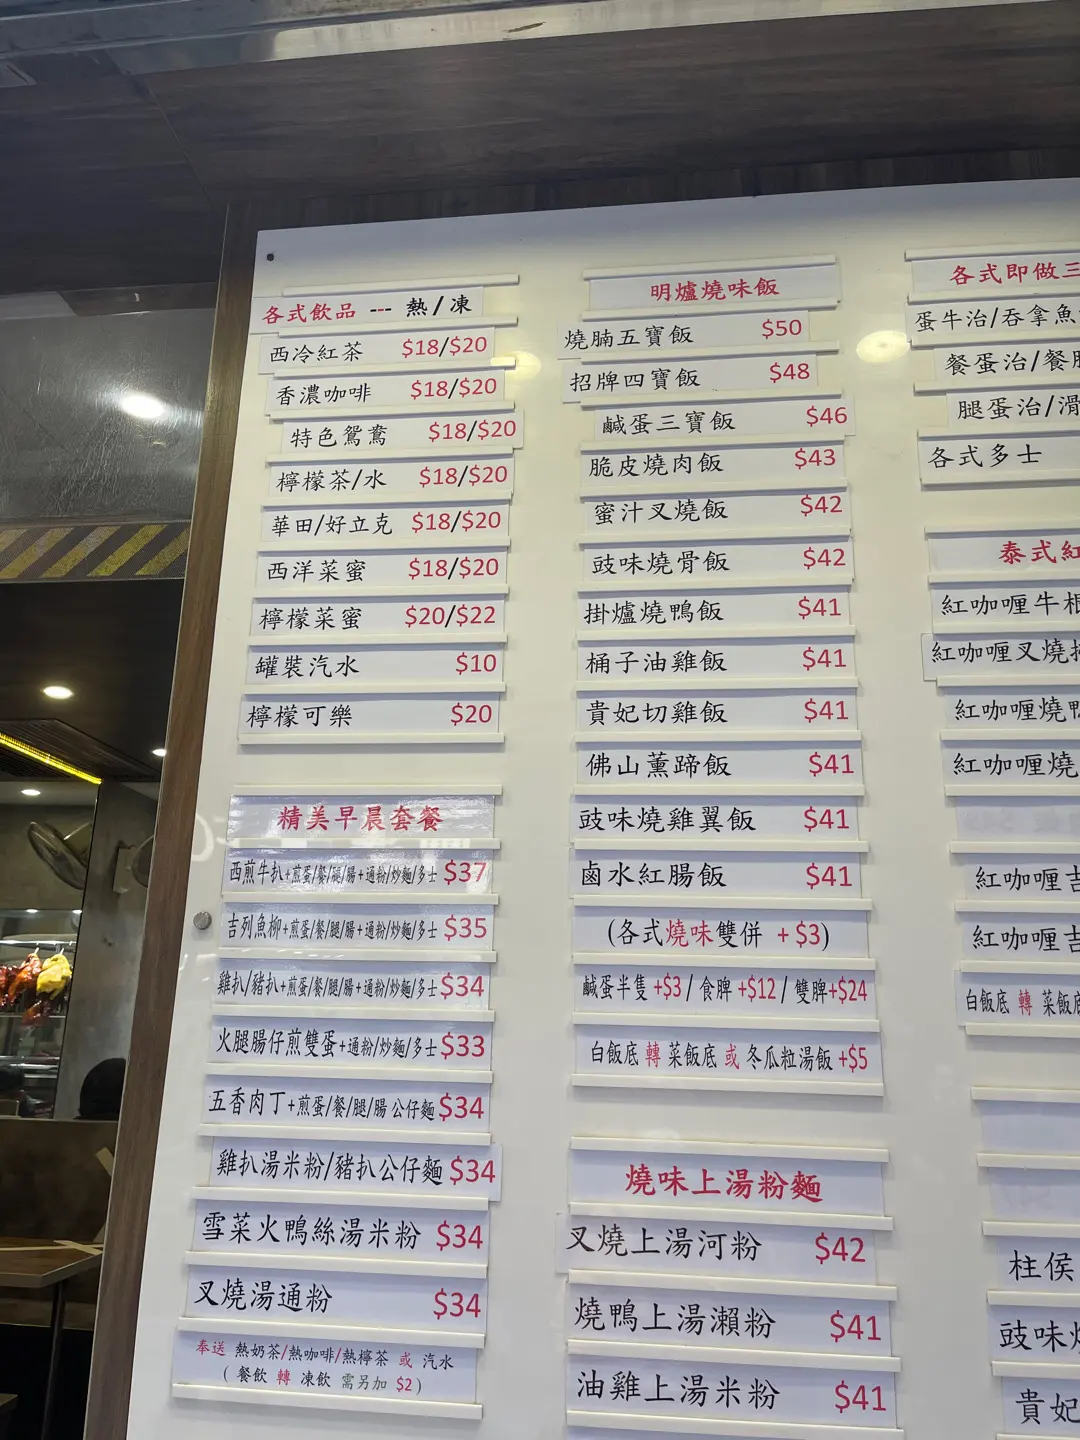 各式飲品 --- 熱/凍
西冷紅茶 $18/$20
香濃咖啡 $18/$20
特色鴛鴦 $18/$20
檸檬茶/水 $18/$20
華田/好立克 $18/$20
西洋菜蜜 $18/$20
檸檬菜蜜 $20/$22
罐裝汽水 $10
檸檬可樂 $20
精美早晨套餐
西煎牛扒+煎蛋/餐/腿/腸+通粉/炒麵/多士 $37
吉列魚柳+煎蛋/餐/腿/腸+通粉/炒麵/多士 $35
雞扒/豬扒+煎蛋/餐/腿/腸+通粉/炒麵/多士 $34
火腿腸仔煎雙蛋+通粉/炒麵/多士 $33
五香肉丁+煎蛋/餐/腿/腸 公仔麵 $34
雞扒湯米粉/豬扒公仔麵 $34
雪菜火鴨絲湯米粉 $34
叉燒湯通粉 $34
奉送 熱奶茶/熱咖啡/熱檸茶 或 汽水
( 餐飲 轉 凍飲 需另加 $2 )
明爐燒味飯
燒腩五寶飯 $50
招牌四寶飯 $48
鹹蛋三寶飯 $46
脆皮燒肉飯 $43
蜜汁叉燒飯 $42
豉味燒骨飯 $42
掛爐燒鴨飯 $41
桶子油雞飯 $41
貴妃切雞飯 $41
佛山薰蹄飯 $41
豉味燒雞翼飯 $41
鹵水紅腸飯 $41
(各式燒味雙併 + $3)
鹹蛋半隻 +$3 / 食脾 +$12 / 雙脾+$24
白飯底 轉 菜飯底 或 冬瓜粒湯飯 +$5
燒味上湯粉麵
叉燒上湯河粉 $42
燒鴨上湯瀨粉 $41
油雞上湯米粉 $41
各式即做三
蛋牛治/吞拿魚
餐蛋治/餐腿
腿蛋治/滑
各式多士
泰式紅
紅咖喱牛根
紅咖喱叉燒
紅咖喱燒鴨
紅咖喱燒
紅咖喱吉
紅咖喱吉
白飯底 轉 菜飯底
柱侯
豉味燒
貴妃